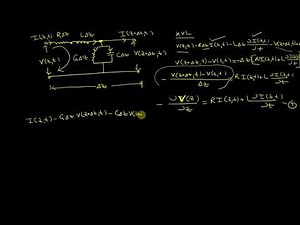 I(z,t) RΔz LΔz I(z+Δz,t)
V(z,t) GΔz CΔz V(z+Δz,t)
Δz
KVL
V(z,t) - RΔz I(z,t) - LΔz ∂I(z,t)/∂t - V(z+Δz,t)
V(z+Δz,t) - V(z,t) = -Δz [RI(z,t) + L ∂I(z,t)/∂t
- V(z+Δz,t) - V(z,t) / Δz = RI(z,t) + L ∂I(z,t)/∂t
- ∂V(z)/∂z = RI(z,t) + L ∂I(z,t)/∂t - ①
I(z,t) - GΔz V(z+Δz,t) - CΔz V(z